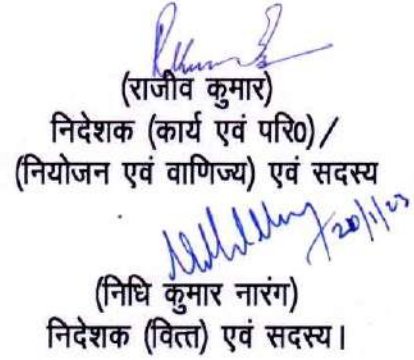 (राजीव कुमार)
निदेशक (कार्य एवं परि0)/
(नियोजन एवं वाणिज्य) एवं सदस्य
20/1/23
(निधि कुमार नारंग)
निदेशक (वित्त) एवं सदस्य।